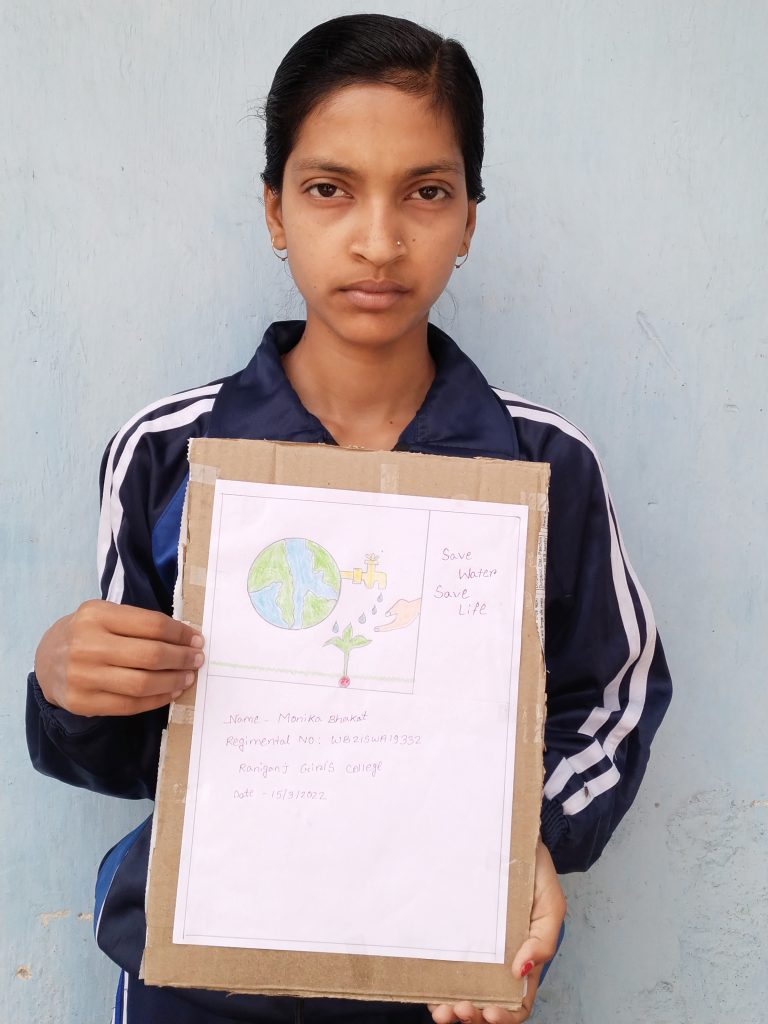 Save
Water
Save
Life
Name - Monika Bhakat
Regimental NO: WB21SWA19332
Raniganj Girls College
Date - 15/3/2022